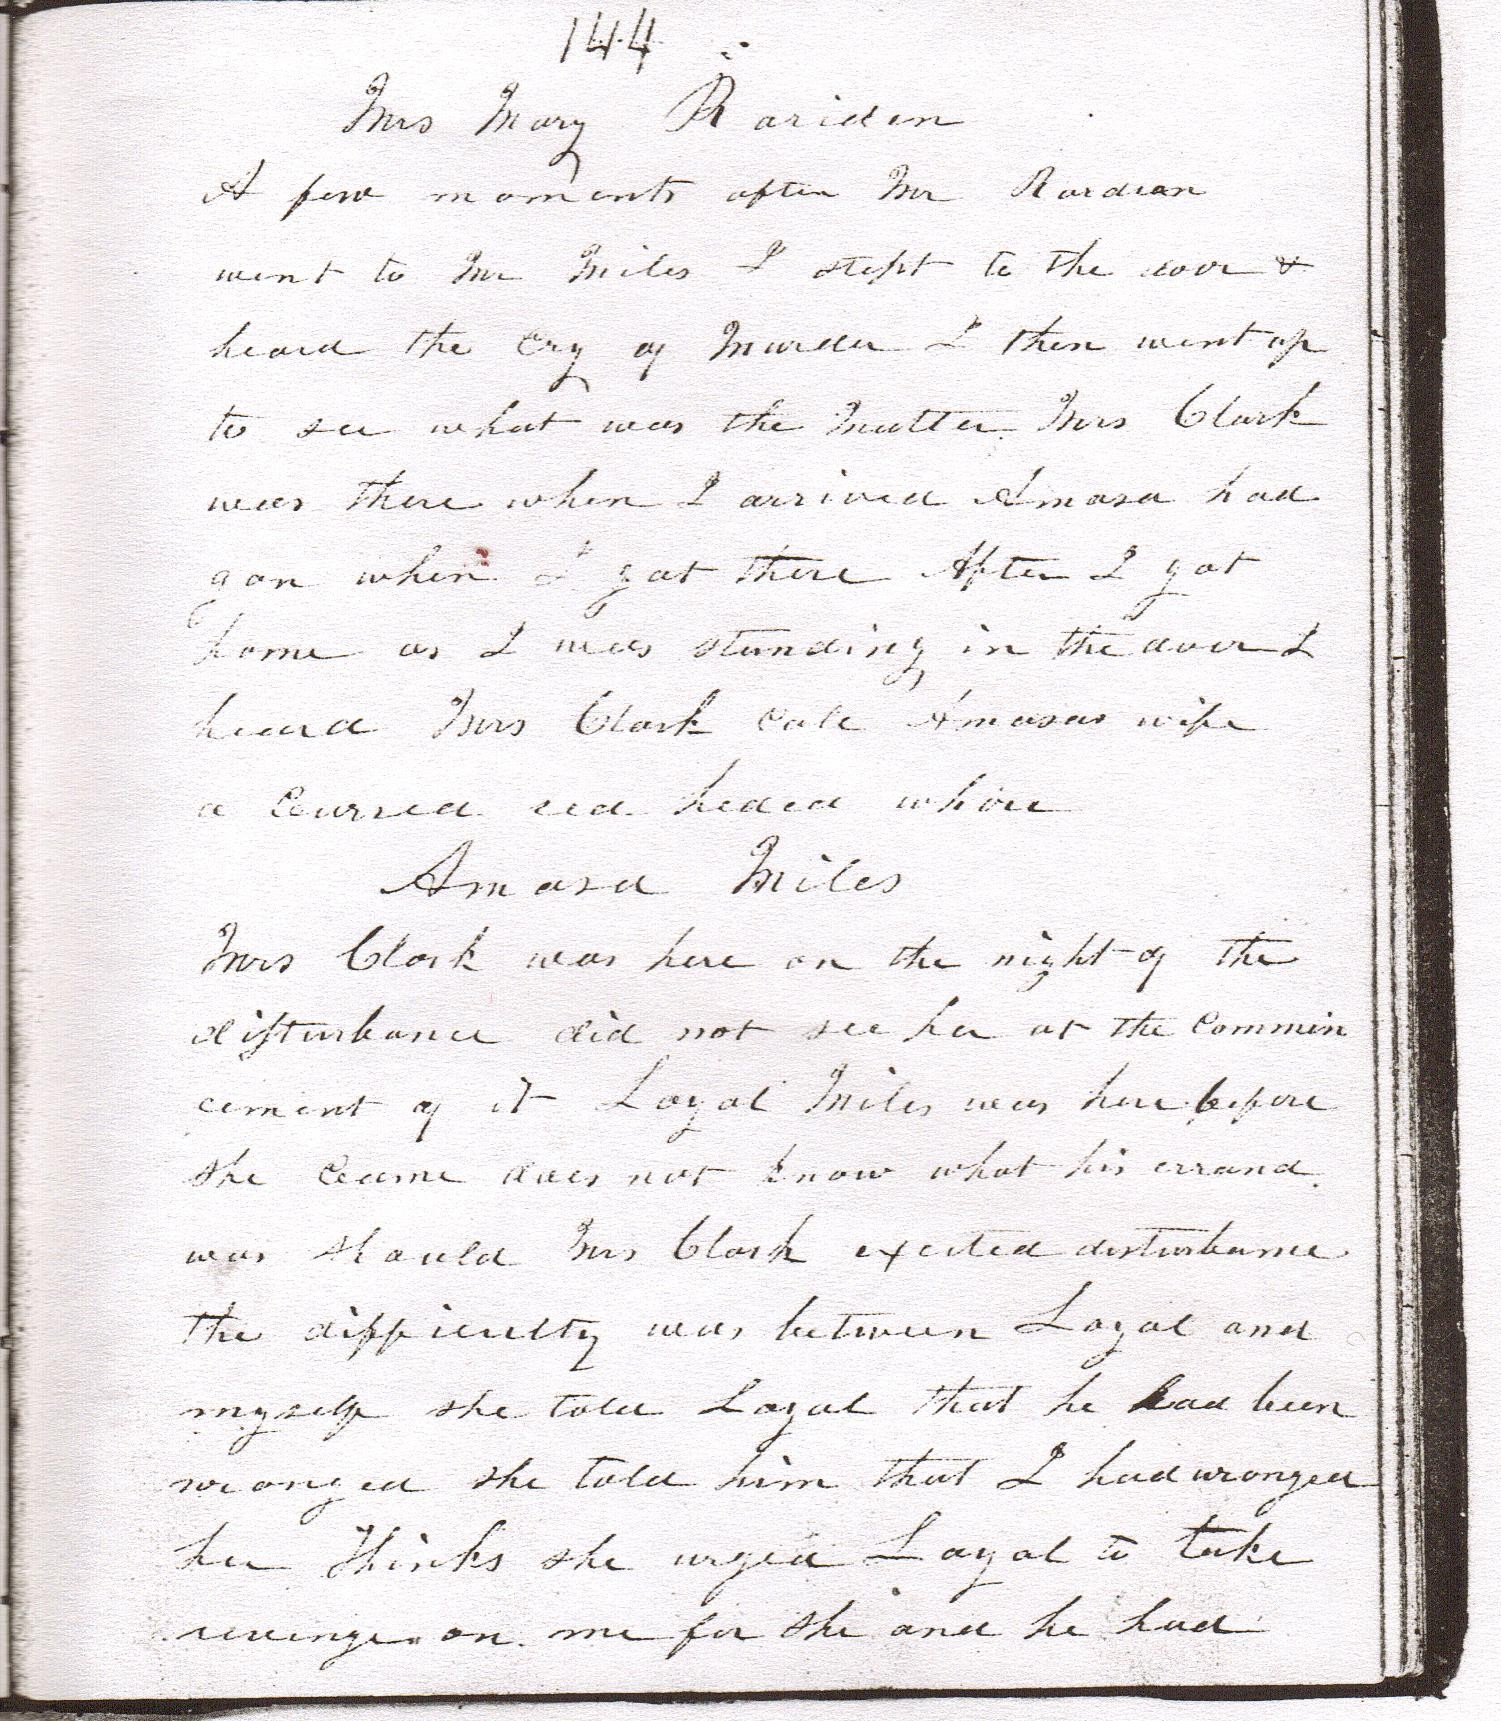 144
Mrs Mary Rariden
A few moments after Mr Rardian
went to Mr Miles I stept to the door &
heard the cry of Murder I then went up
to see what was the Matter. Mrs Clark
was there when I arrived Amasa had
gon when I got there After I got
home as I was standing in the door I
heard Mrs Clark cale Amasas wife
a Cursed red heded whore
Amasa Miles
Mrs Clark was here on the night of the
disturbance did not see her at the Commin
cement of it Loyal Miles was here before
she Came does not know what his errand
was should Mrs Clark excited disturbance
the difficulty was between Loyal and
myself she told Loyal that he had been
wronged she told him that I had wronged
her Thinks she urged Loyal to take
revenge on me for she and he had